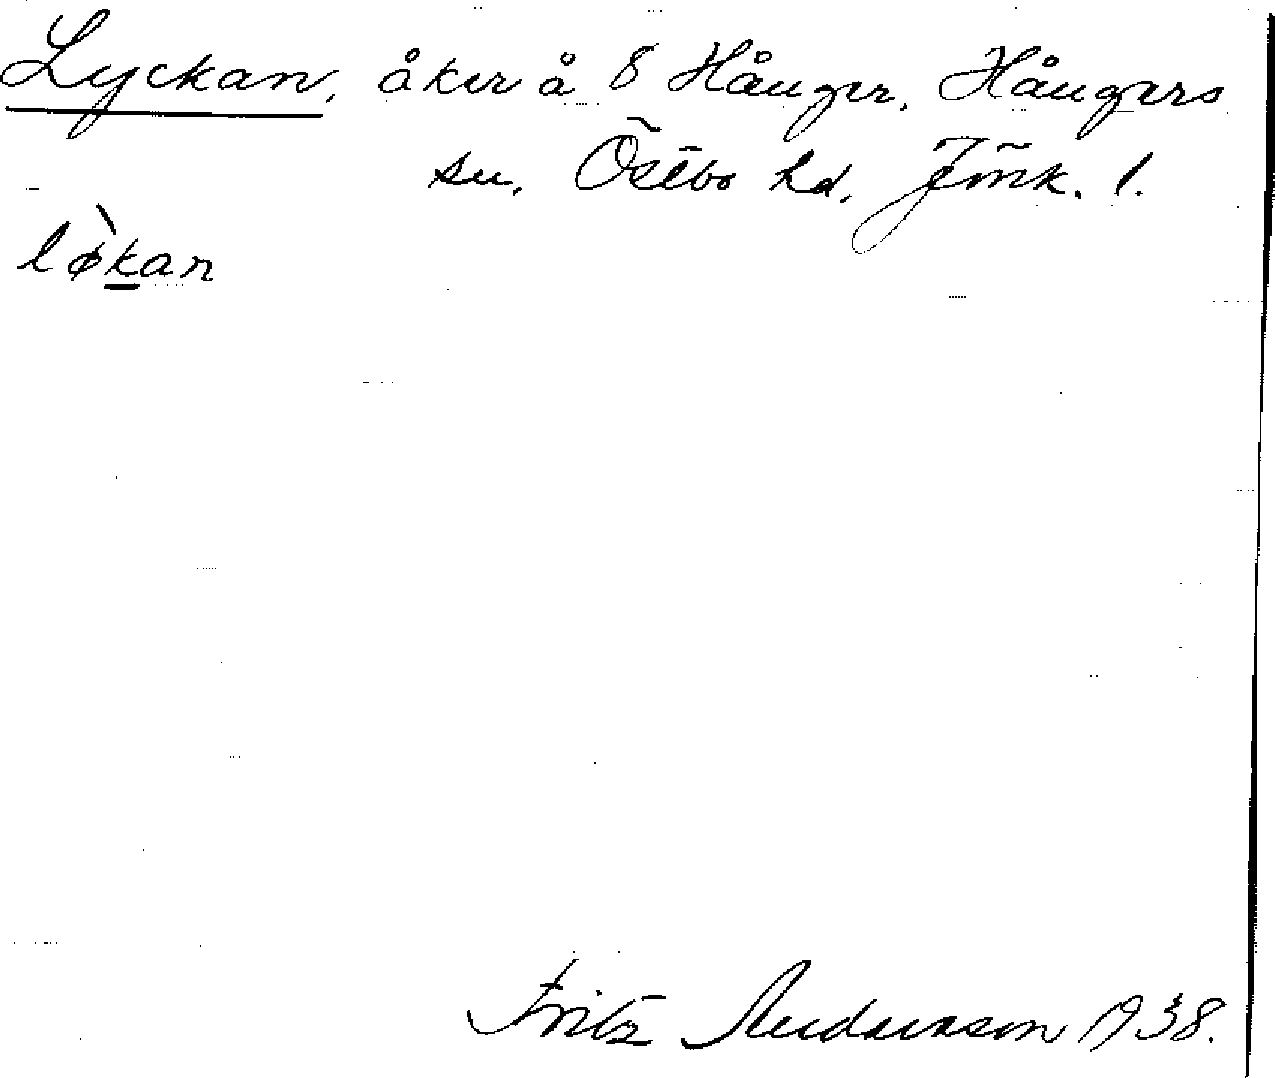 Lyckan, åker å 8 Hånger, Hångers
sn, Östbo hd, Jönk. l.
lø̀kan
Fritz Andersson 1938.